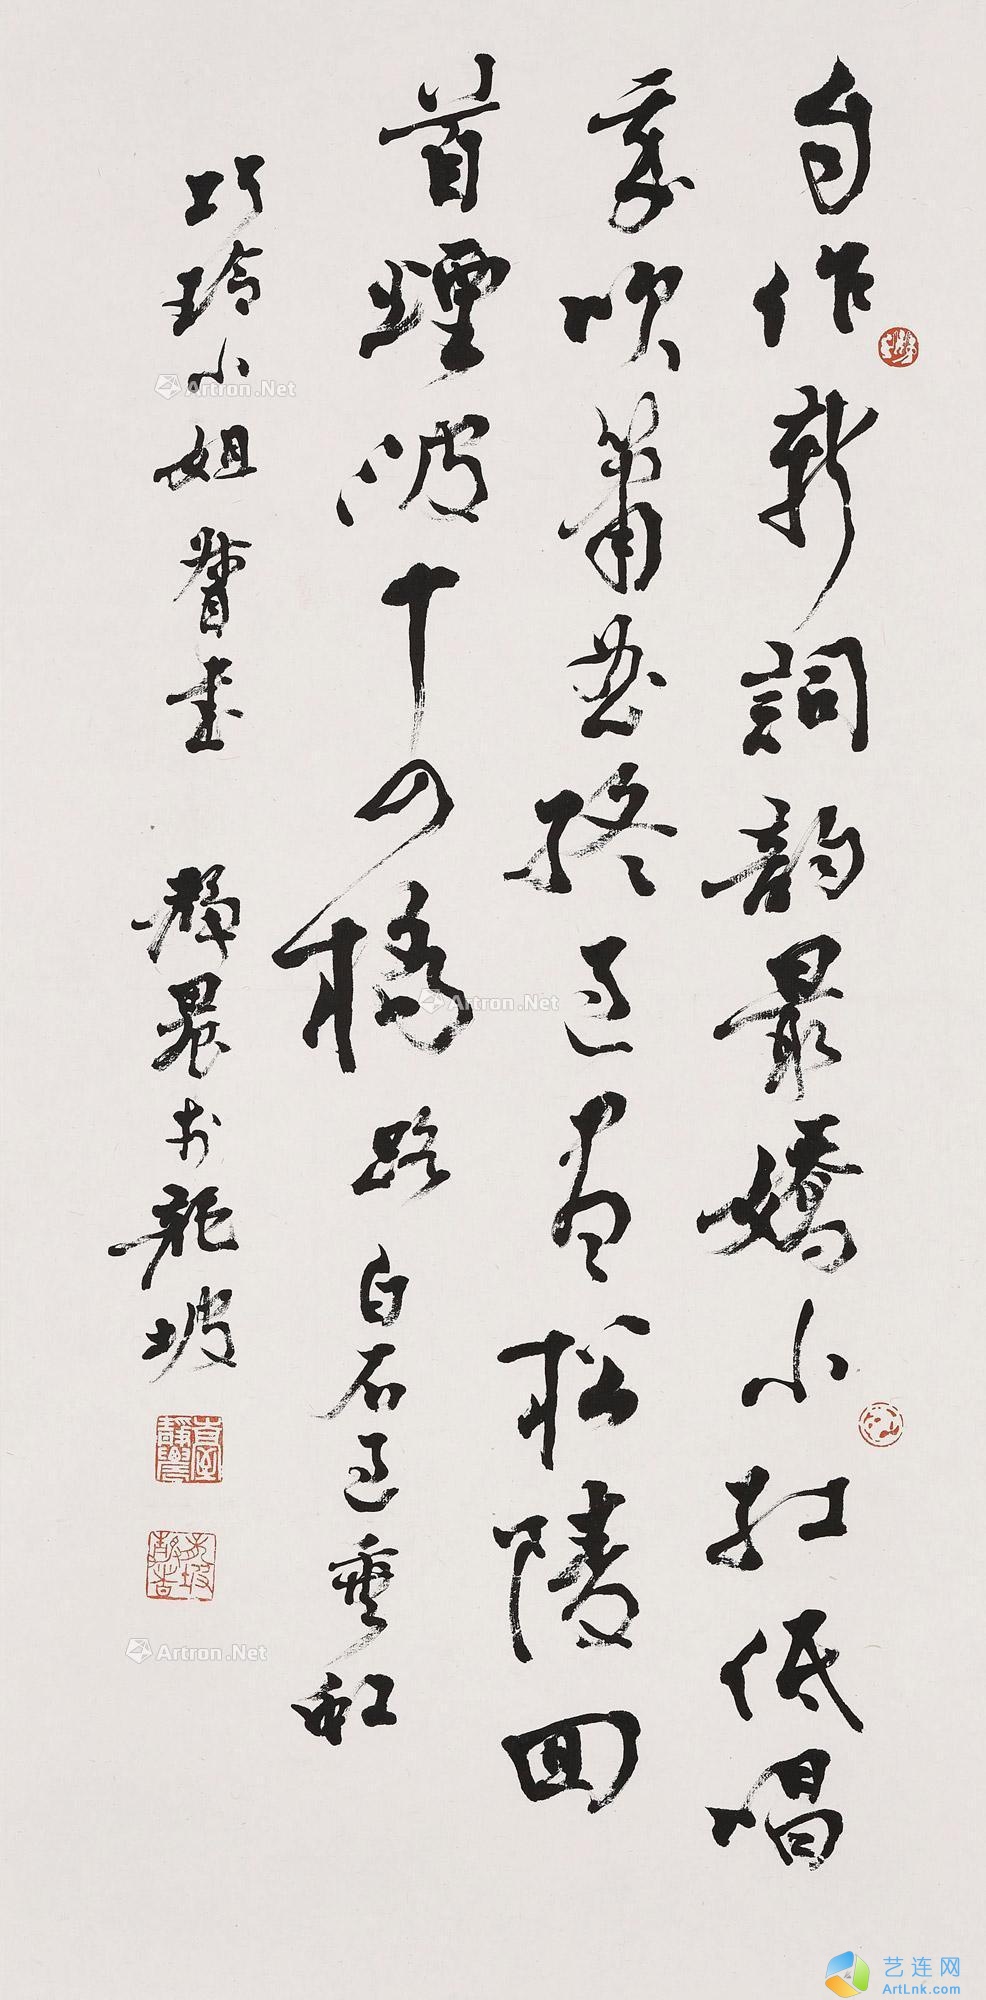 自作新詞韻最嬌小紅低唱
我吹簫曲終過盡松陵回
首煙波十四橋 路 白石過垂虹
巧玲小姐督書 靜農於龍坡
臺靜農
Artron.Net
Artron.Net
Artron.Net
艺连网
ArtLnk.com